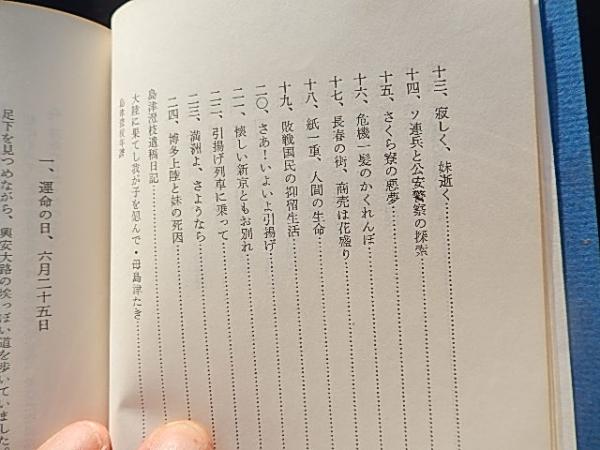 十三、寂しく、妹逝く
十四、ソ連兵と公安警察の探索
十五、さくら寮の悪夢
十六、危機一髪のかくれんぼ
十七、長春の街、商売は花盛り
十八、紙一重、人間の生命
十九、敗戦国民の抑留生活
二〇、さあ!いよいよ引揚げ
二一、懐しい新京ともお別れ
二二、引揚げ列車に乗って
二三、満洲よ、さようなら
二四、博多上陸と妹の死因
島津澄枝遺稿日記
大陸に果てし我が子を偲んで・母島津たき
一、運命の日、六月二十五日
足下を見つめながら、興安大路の埃っぽい道を歩いていました。